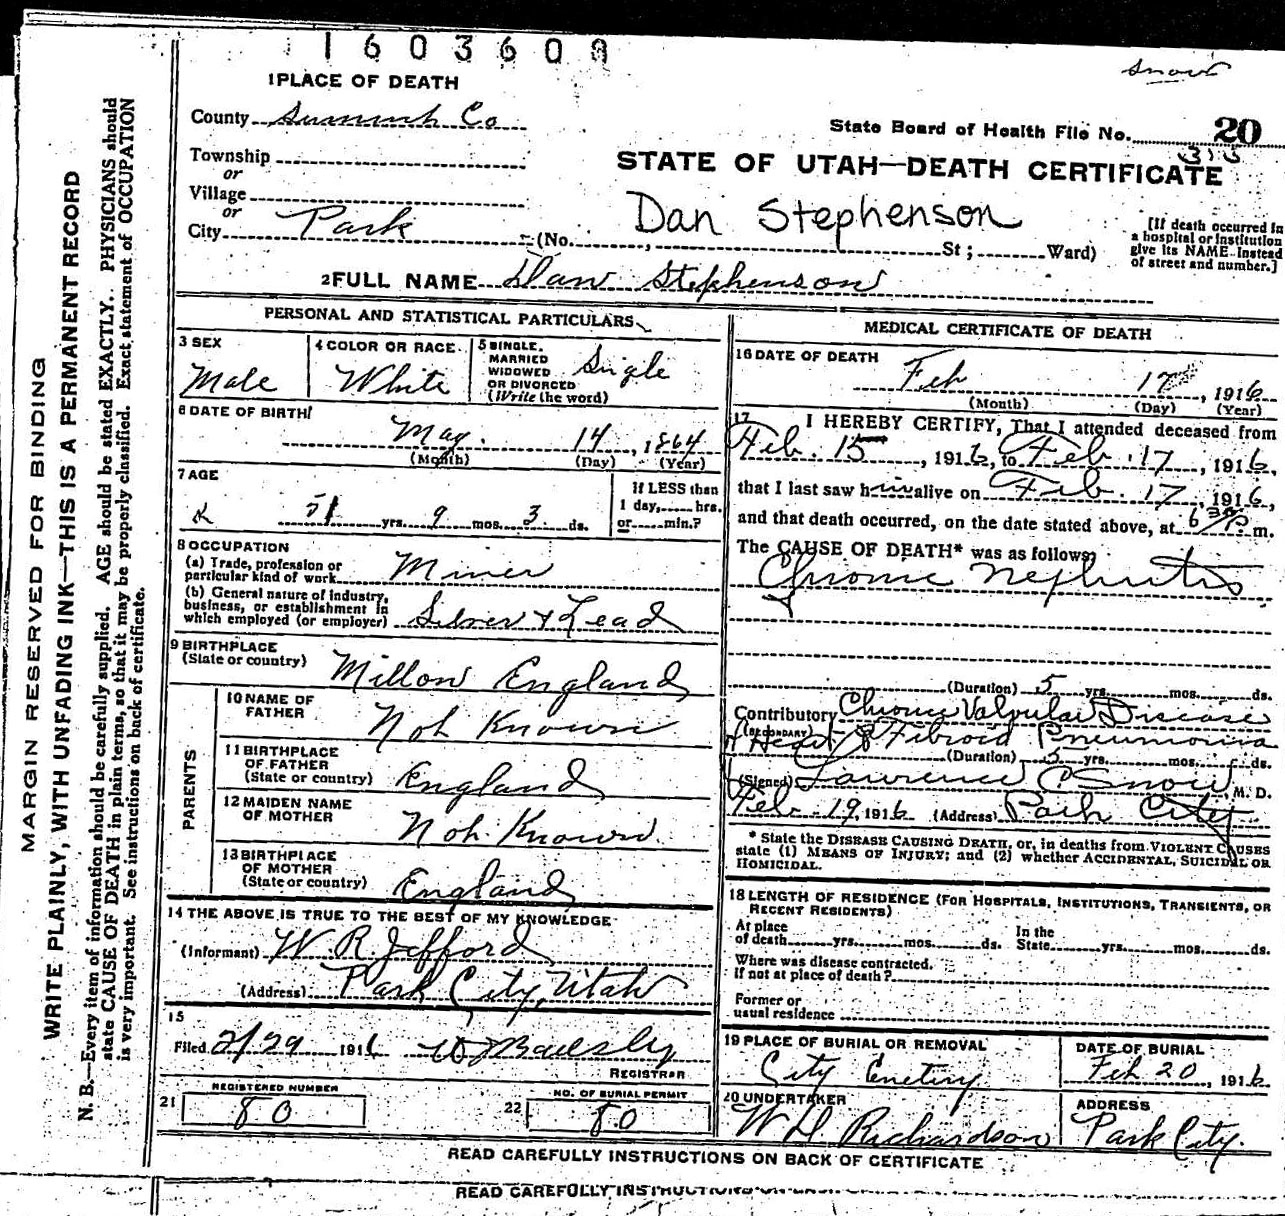 1603600
Snow
1 PLACE OF DEATH
County Summit Co
State Board of Health File No. 20
315
Township
or
Village
or
City Park
STATE OF UTAH—DEATH CERTIFICATE
Dan Stephenson
(No. , St; Ward)
[If death occurred in
a hospital or institution
give its NAME instead
of street and number.]
2 FULL NAME Dan Stephenson
PERSONAL AND STATISTICAL PARTICULARS
3 SEX
Male
4 COLOR OR RACE
White
5 SINGLE,
MARRIED
WIDOWED
OR DIVORCED
(Write the word)
Single
6 DATE OF BIRTH
May 14, 1864
(Month) (Day) (Year)
7 AGE
51 yrs. 9 mos. 3 ds.
If LESS than
1 day, hrs.
or min.?
8 OCCUPATION
(a) Trade, profession or
particular kind of work Miner
(b) General nature of industry,
business, or establishment in
which employed (or employer) Silver & Lead
9 BIRTHPLACE
(State or country) Millow England
PARENTS
10 NAME OF
FATHER Not Known
11 BIRTHPLACE
OF FATHER
(State or country) England
12 MAIDEN NAME
OF MOTHER Not Known
13 BIRTHPLACE
OF MOTHER
(State or country) England
14 THE ABOVE IS TRUE TO THE BEST OF MY KNOWLEDGE
(Informant) W. R. Jefford
(Address) Park City, Utah
15
Filed 2/29 1916
REGISTRAR
REGISTERED NUMBER
21 80
NO. OF BURIAL PERMIT
22 80
MEDICAL CERTIFICATE OF DEATH
16 DATE OF DEATH
Feb 17, 1916
(Month) (Day) (Year)
17 I HEREBY CERTIFY, That I attended deceased from
Feb. 15, 1916, to Feb. 17, 1916,
that I last saw him alive on Feb. 17, 1916,
and that death occurred, on the date stated above, at 6 30 P. m.
The CAUSE OF DEATH* was as follows:
Chronic Nephritis
(Duration) 5 yrs. mos. ds.
Contributory Chronic Valvular Disease
(SECONDARY)
of Heart & Fibroid Pneumonia
(Duration) 5 yrs. mos. ds.
(Signed) Lawrence C Snow, M. D.
Feb. 19, 1916 (Address) Park City
* State the DISEASE CAUSING DEATH, or, in deaths from VIOLENT CAUSES
state (1) MEANS OF INJURY; and (2) whether ACCIDENTAL, SUICIDAL OR
HOMICIDAL.
18 LENGTH OF RESIDENCE (FOR HOSPITALS, INSTITUTIONS, TRANSIENTS, OR
RECENT RESIDENTS)
At place
of death yrs. mos. ds.
In the
State yrs. mos. ds.
Where was disease contracted,
if not at place of death?
Former or
usual residence
19 PLACE OF BURIAL OR REMOVAL
City Cemetery
DATE OF BURIAL
Feb 20, 1916
20 UNDERTAKER
W. D. Richardson
ADDRESS
Park City.
READ CAREFULLY INSTRUCTIONS ON BACK OF CERTIFICATE
READ CAREFULLY INSTRUCTIONS ON
MARGIN RESERVED FOR BINDING
WRITE PLAINLY, WITH UNFADING INK—THIS IS A PERMANENT RECORD
N. B.—Every item of information should be carefully supplied. AGE should be stated EXACTLY. PHYSICIANS should
state CAUSE OF DEATH in plain terms, so that it may be properly classified. Exact statement of OCCUPATION
is very important. See instructions on back of certificate.